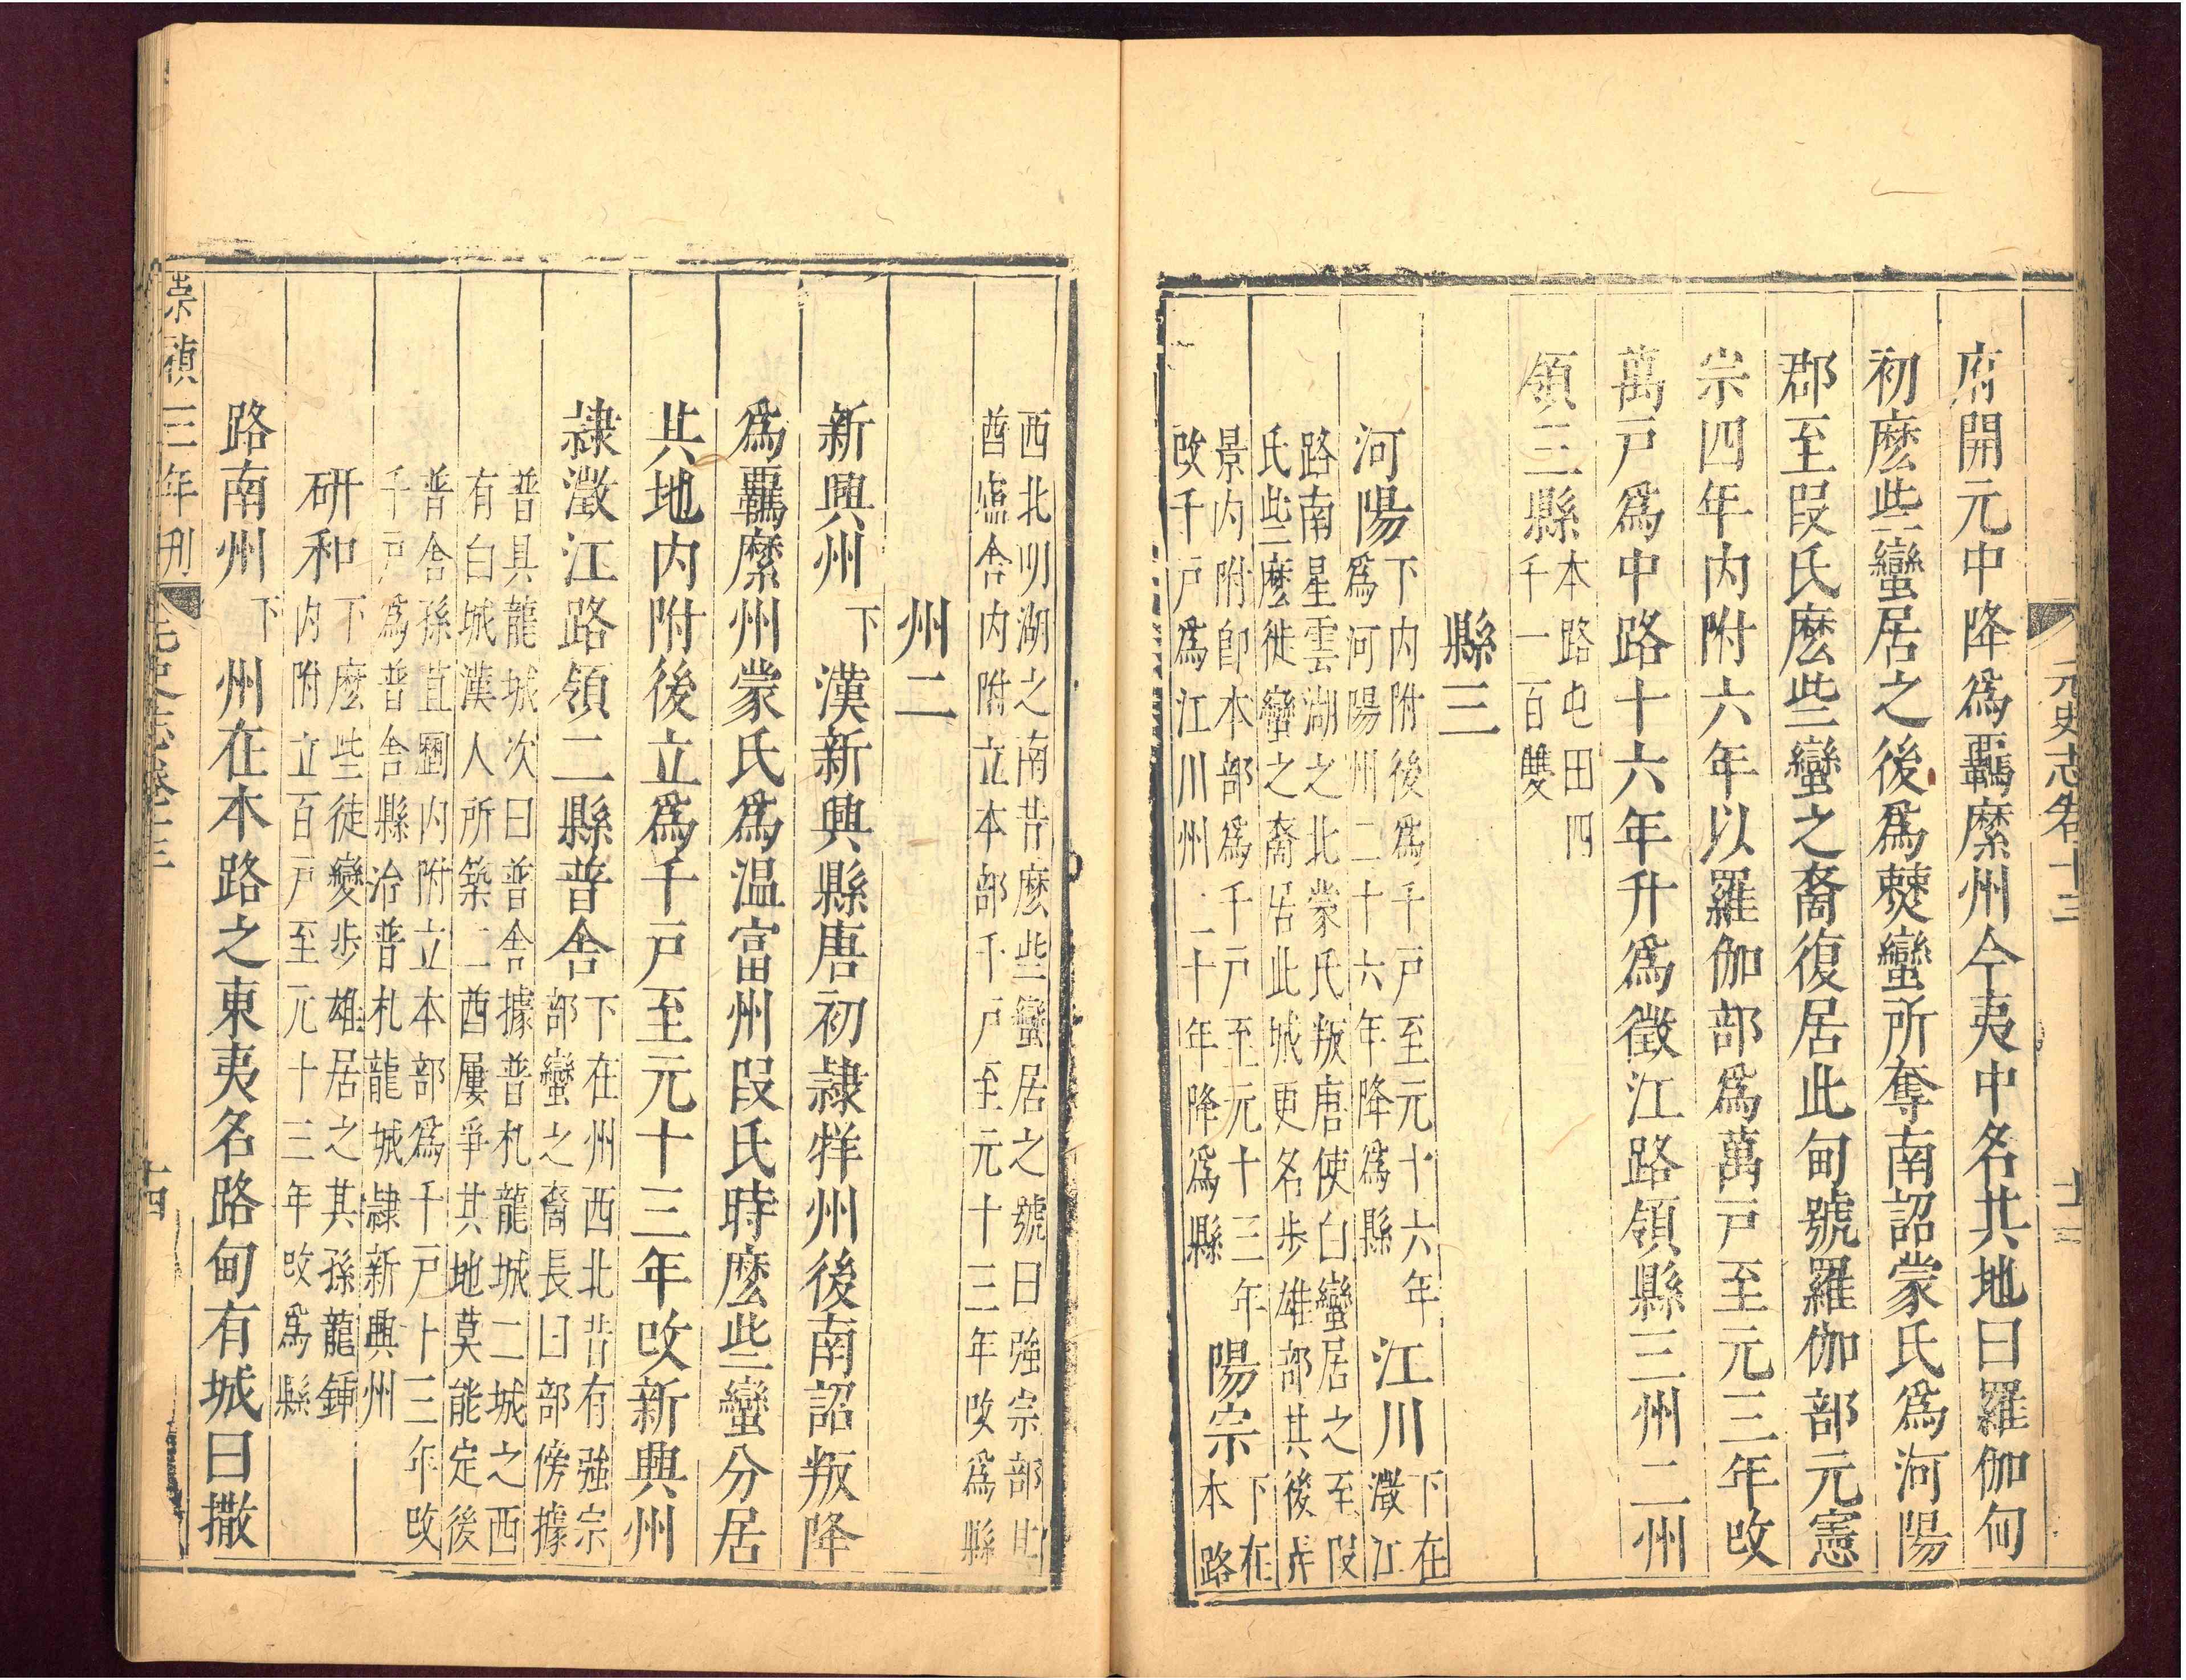 元史志卷十三
十三
府開元中降爲羈縻州今夷中名其地曰羅伽甸
初麽些蠻居之後爲僰蠻所奪南詔蒙氏爲河陽
郡至叚氏麽些蠻之裔復居此甸號羅伽部元憲
宗四年内附六年以羅伽部爲萬戸至元三年改
萬戸爲中路十六年升爲徵江路領縣三州二州
領三縣本路屯田四
千一百雙
縣三
河陽下内附後爲千戸至元十六年
爲河陽州二十六年降爲縣
江川下在
澂江
路南星雲湖之北蒙氏叛唐使白蠻居之至叚
氏些麽徙蠻之裔居此城更名步雄部其後弄
景内附卽本部爲千戸至元十三年
改千戸爲江川州二十年降爲縣
陽宗下在
本路
西北明湖之南昔麽些蠻居之號曰強宗部其
酋盧舍内附立本部千戸至元十三年改爲縣
州二
新興州下漢新興縣唐初隷牂州後南詔叛降
爲羈縻州蒙氏爲温富州叚氏時麽些蠻分居
其地内附後立爲千戸至元十三年改新興州
隷澂江路領二縣普舍下在州西北昔有強宗
部蠻之裔長曰部傍據
普具龍城次曰普舍據普札龍城二城之西
有白城漢人所築二酋屢爭其地莫能定後
普舍孫苴𡇙内附立本部爲千戸十三年改
千戸爲普舍縣治普札龍城隷新興州
研和下麽些徒蠻步雄居之其孫龍鍾
内附立百戸至元十三年改爲縣
路南州下州在本路之東夷名路甸有城曰撒
崇禎三年刊
元史志卷十三
十四